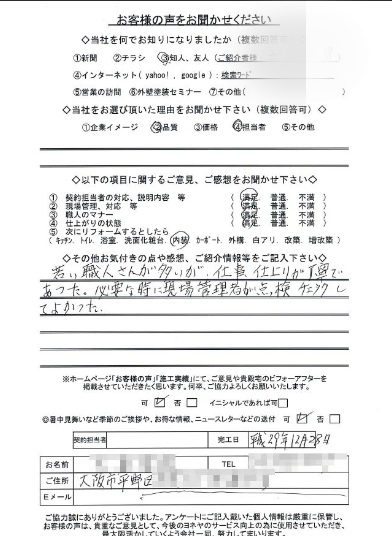 お客様の声をお聞かせください
◇当社を何でお知りになりましたか（複数回答可）
①新聞 ②チラシ ③知人、友人（ご紹介者様
④インターネット（yahoo!，google）：検索ワード
⑤営業の訪問 ⑥外壁塗装セミナー ⑦その他（ ）
◇当社をお選び頂いた理由をお聞かせ下さい（複数回答可）
①企業イメージ ②品質 ③価格 ④担当者 ⑤その他
◇以下の項目に関するご意見、ご感想をお聞かせ下さい◇
① 契約担当者の対応、説明内容 等 （満足 普通 不満）
② 現場管理、対応 等 （満足 普通 不満）
③ 職人のマナー （満足 普通 不満）
④ 仕上がりの状態 （満足 普通 不満）
⑤ 次にリフォームするとしたら
（キッチン．トイレ．浴室．洗面化粧台．内装．カーポート．外構．白アリ．改築．増改築）
◇その他お気付きの点や感想、ご紹介情報等をご記入下さい◇
若い職人さんが多いが、仕事、仕上りが丁寧で
あった。必要な時に現場管理者が点検チェックし
てよかった。
※ホームページ「お客様の声」「施工実績」にて、ご意見や貴殿宅のビフォーアフターを
掲載させていただきたく思います。何卒、ご協力よろしくお願いいたします。
可 ☑ 否 □ イニシャルであれば可 □
◎暑中見舞いなど季節のご挨拶や、お得な情報、ニュースレターなどの送付 可 ☑ 否 □
契約担当者 完工日 平成29年12月28日
お名前 TEL
ご住所 大阪市平野区
Eメール
ご協力誠にありがとうございました。アンケートにご記入戴いた個人情報は厳重に保管し、
お客様の声は、貴重なご意見として、今後のヨネヤのサービス向上の為に使用させていただき、
最大限活かしていくよう会社一同、努力してまいります。